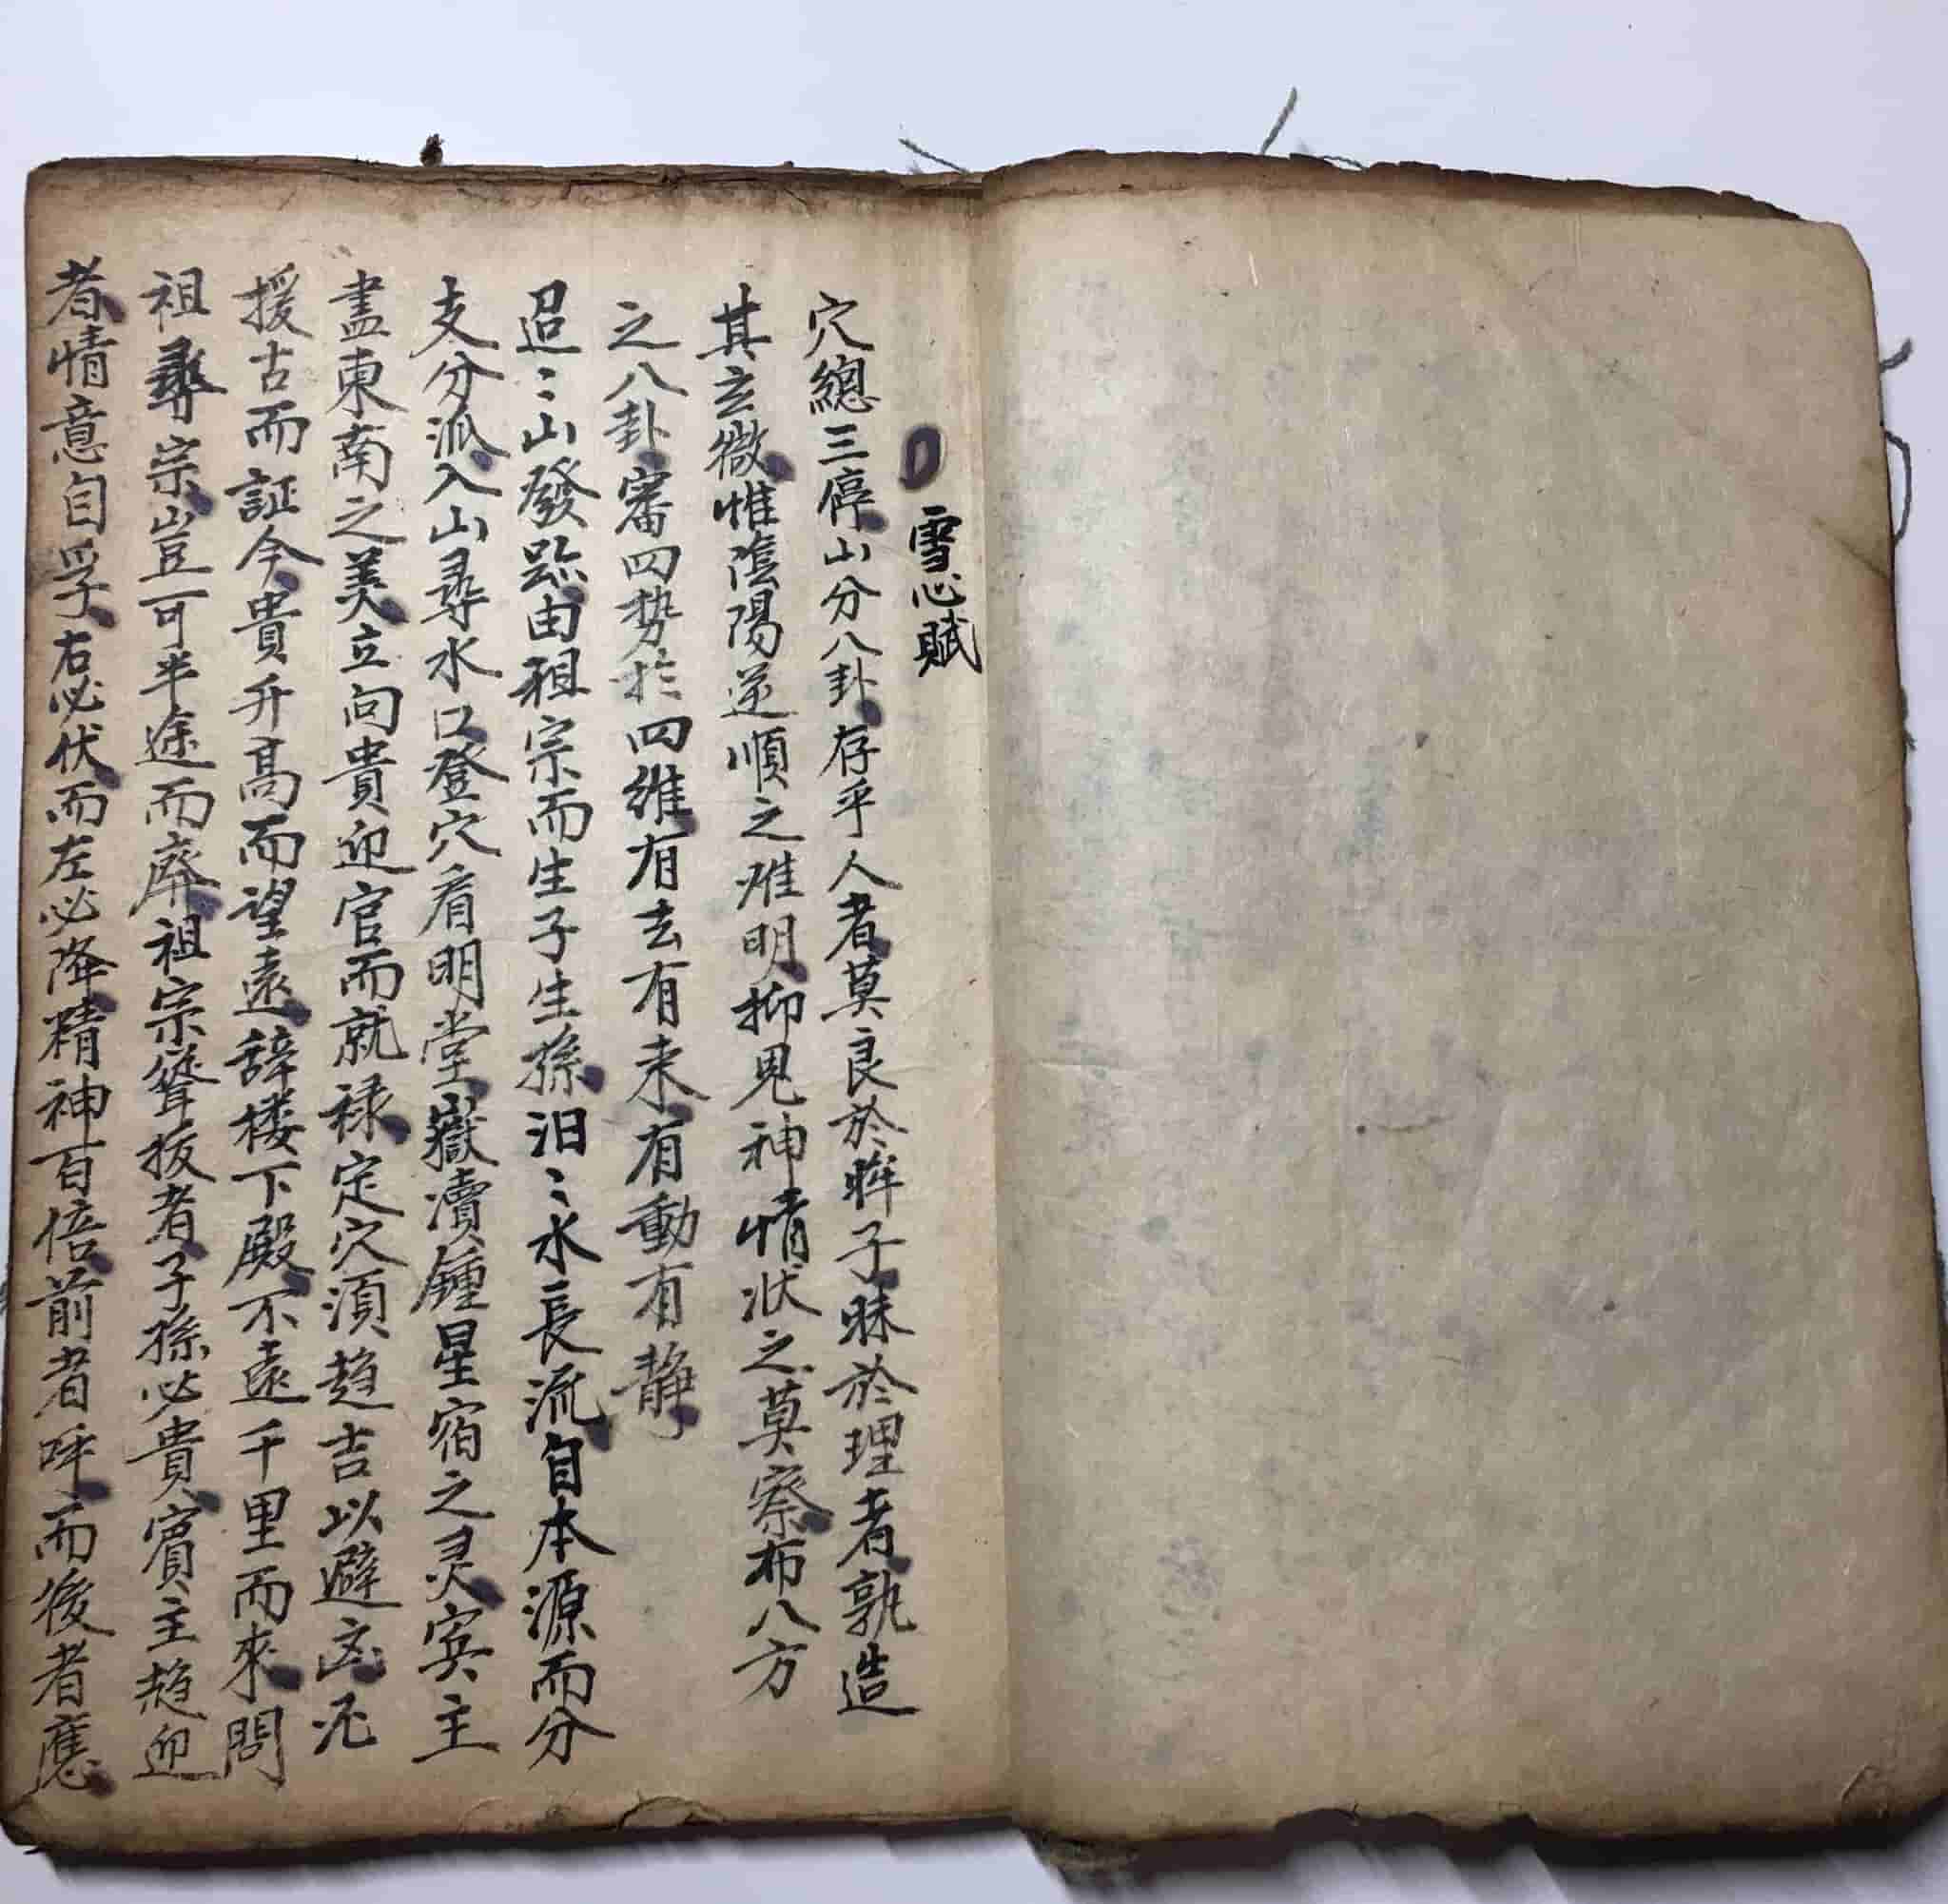 雪心賦
穴總三停山分八卦存乎人者莫良於眸子昧於理者孰造
其玄微惟陰陽逆順之难明抑鬼神情狀之莫察布八方
之八卦審四势於四维有去有来有動有静
迢〻山發跡由祖宗而生子生孫汨〻水長流自本源而分
支分派入山尋水口登穴看明堂嶽瀆鍾星宿之灵宾主
盡東南之美立向貴迎官而就禄定穴須趋吉以避凶
援古而証今貴升髙而望遠辞楼下殿不遠千里而來問
祖尋宗豈可半途而廢祖宗聳拔者子孫必貴賓主趋迎
者情意自孚右必伏而左必降精神百倍前者呼而後者應